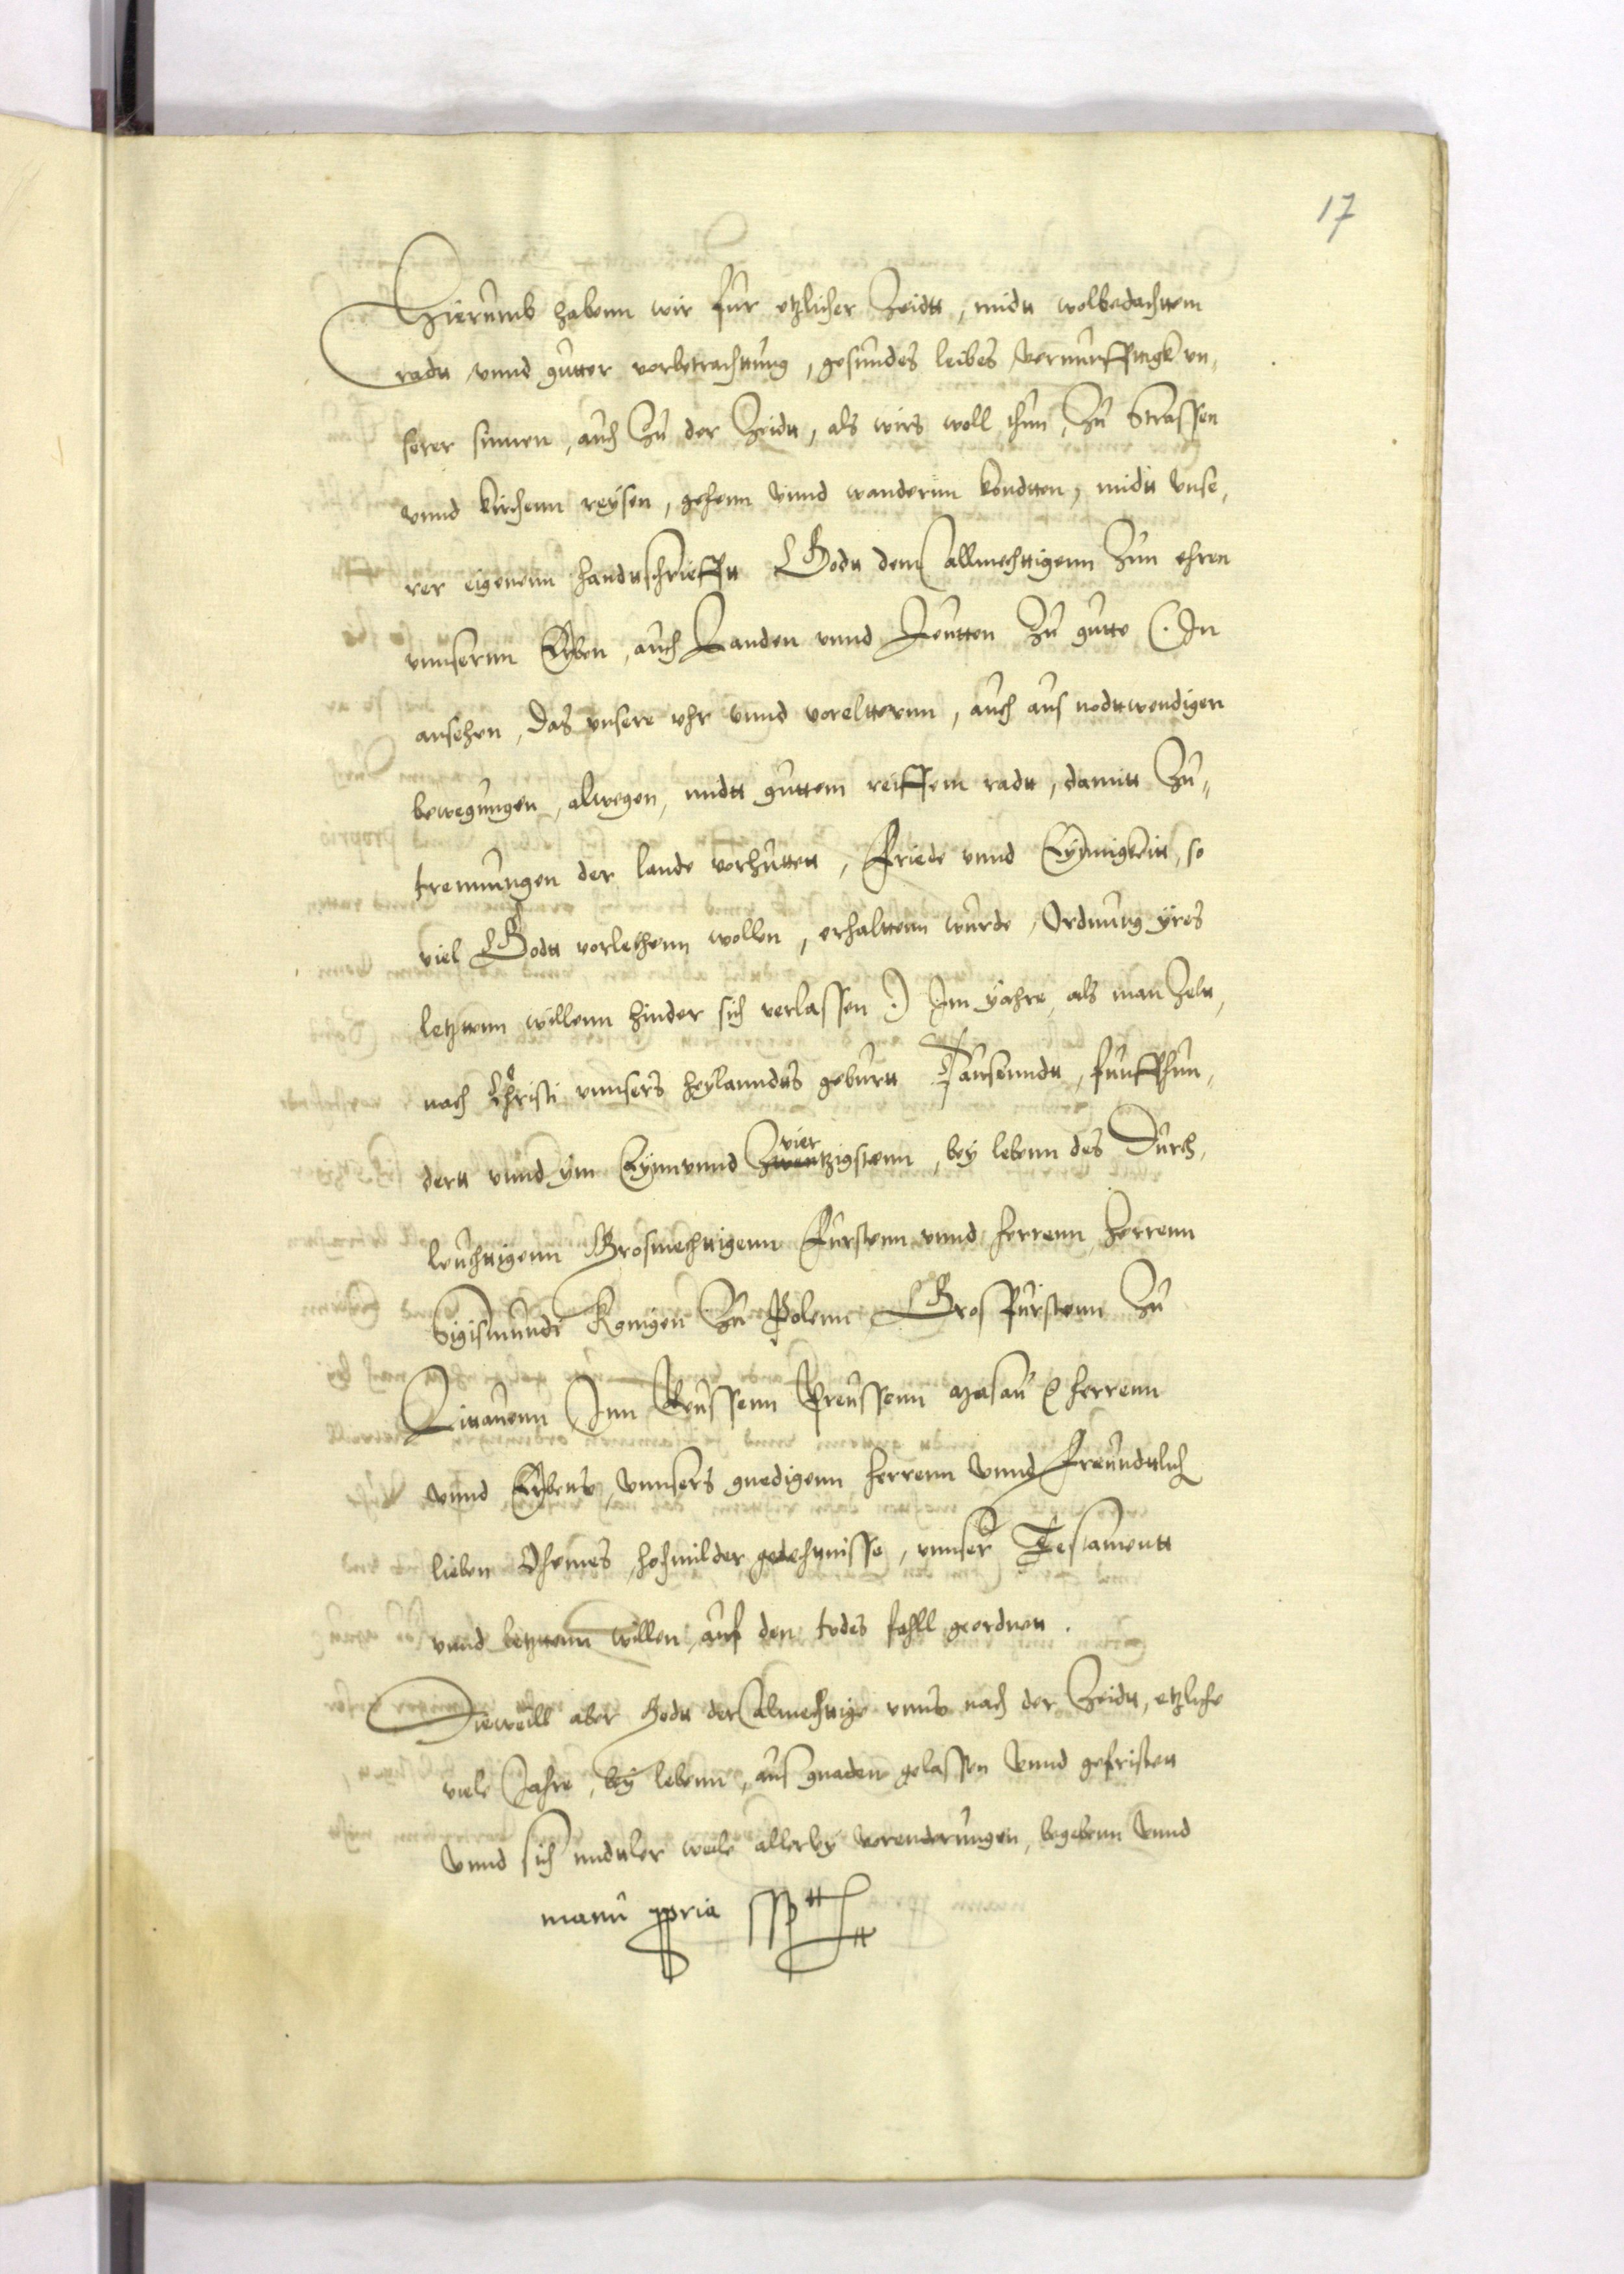 17
Hierumb habenn wir fur etzlicher Zeidtt, midtt wolbedachttem
radtt vnnd gutter vorbetrachttung, gesundes leibes, vernunfftigk vn,
serer sinnen, auch Zu der Zeidtt, als wirs woll thun, Zu Strassen
vnnd kirchenn reysen, gehenn vnnd wandernn kondtten, midtt vnse,
rer eigenenn handttschriefftt Godtt dem allmechttigenn Zun ehren
vnnsernn Erben, auch Landen vnnd Leutten Zu gutte (. In
ansehen, das vnsere vhr vnnd voreltternn, auch aus nodttwendigen
bewegungen, alwegen, midtt guttem reiffem radtt, damitt Zu,,
trennungen der lande vorhuttett, Friede vnnd Eynnigkeitt, so
viel Godtt vorlethenn wollen, erhalttenn wurde, Ordnung yres
letzttenn willenn hinder sich verlassen .) Im yahre, als man Zeltt,
nach Christi vnnsers heylanndtts geburtt Tausenndtt, funffhun,
dertt vnnd ym Eynnvnnd Zwentzigstenn vier, bey lebenn des Durch,
leuchttigenn Grosmechttigenn Furstenn vnnd herrenn, herrenn
Sigismundt Konigen Zu Polenn Gros Furstenn Zu
Littauenn Inn Reussenn Preussenn Masau &c herrenn
vnnd Erbens, vnnsers gnedigenn herrenn vnnd Freundttlich
lieben Ohemes, hochmilder gedechtnisse, vnnser Testamentt
vnnd letzttenn willen, auf den todes fahll geordnett.
Dieweill aber Godtt der almechttige vnns nach der Zeidtt, etzliche
viele Jahre, bey lebenn, aus gnaden gelassen vnnd gefristett
vnnd sich midtler weile allerley verenderungen, begebenn vnnd
manu ppria